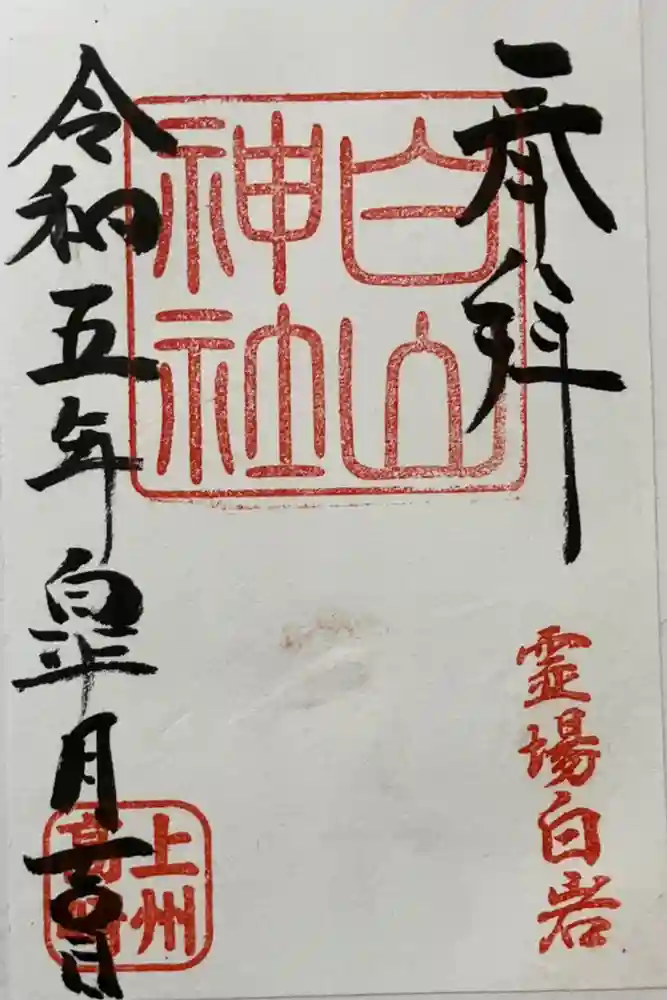 奉拝
白山
神社
霊場白岩
令和五年皐月
上州
高崎